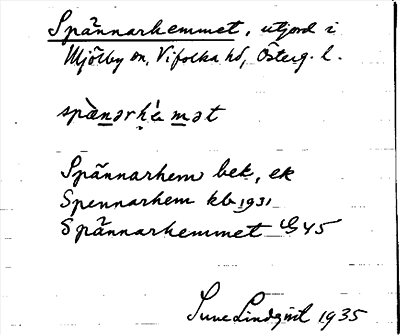 Spännarhemmet, utjord i
Mjölby sn, Vifolka hd, Österg. l.
spä̀nərhé̩mət
Spännarhem bek, ek
Spennarhem kb 1931
Spännarhemmet GS 45
Sune Lindqvist 1935